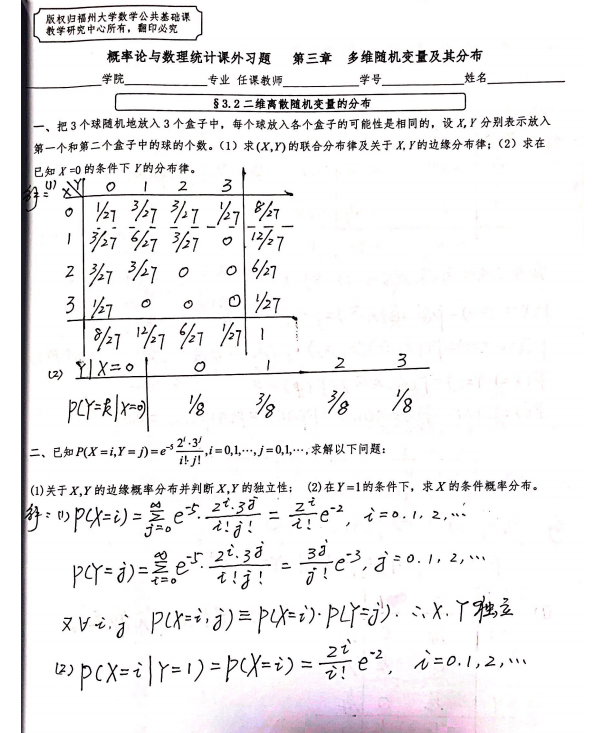 版权归福州大学数学公共基础课
教学研究中心所有，翻印必究
概率论与数理统计课外习题 第三章 多维随机变量及其分布
学院 专业 任课教师 学号 姓名
§3.2二维离散随机变量的分布
一、把3个球随机地放入3个盒子中，每个球放入各个盒子的可能性是相同的，设X,Y分别表示放入
第一个和第二个盒子中的球的个数。（1）求(X,Y)的联合分布律及关于X,Y的边缘分布律；（2）求在
已知X=0的条件下Y的分布律。
解：(1) X Y 0 1 2 3
0 1/27 3/27 3/27 1/27 8/27
1 3/27 6/27 3/27 0 12/27
2 3/27 3/27 0 0 6/27
3 1/27 0 0 0 1/27
8/27 12/27 6/27 1/27 1
(2) Y|X=0 0 1 2 3
P(Y=k|X=0) 1/8 3/8 3/8 1/8
二、已知P(X=i,Y=j)=e^{-5} \frac{2^i·3^j}{i!·j!},i=0,1,⋯,j=0,1,⋯,求解以下问题：
(1)关于X,Y的边缘概率分布并判断X,Y的独立性； (2)在Y=1的条件下，求X的条件概率分布。
解：(1) P(X=i)=\sum_{j=0}^{∞} e^{-5}·\frac{2^i·3^j}{i!j!} = \frac{2^i}{i!}e^{-2}, i=0.1.2,⋯
P(Y=j)=\sum_{i=0}^{∞} e^{-5}·\frac{2^i·3^j}{i!j!} = \frac{3^j}{j!}e^{-3}, j=0.1,2,⋯
又∀i,j P(X=i,j)≡P(X=i)·P(Y=j).∴X.Y独立
(2) P(X=i|Y=1)=P(X=i)=\frac{2^i}{i!}e^{-2}, i=0.1,2,⋯